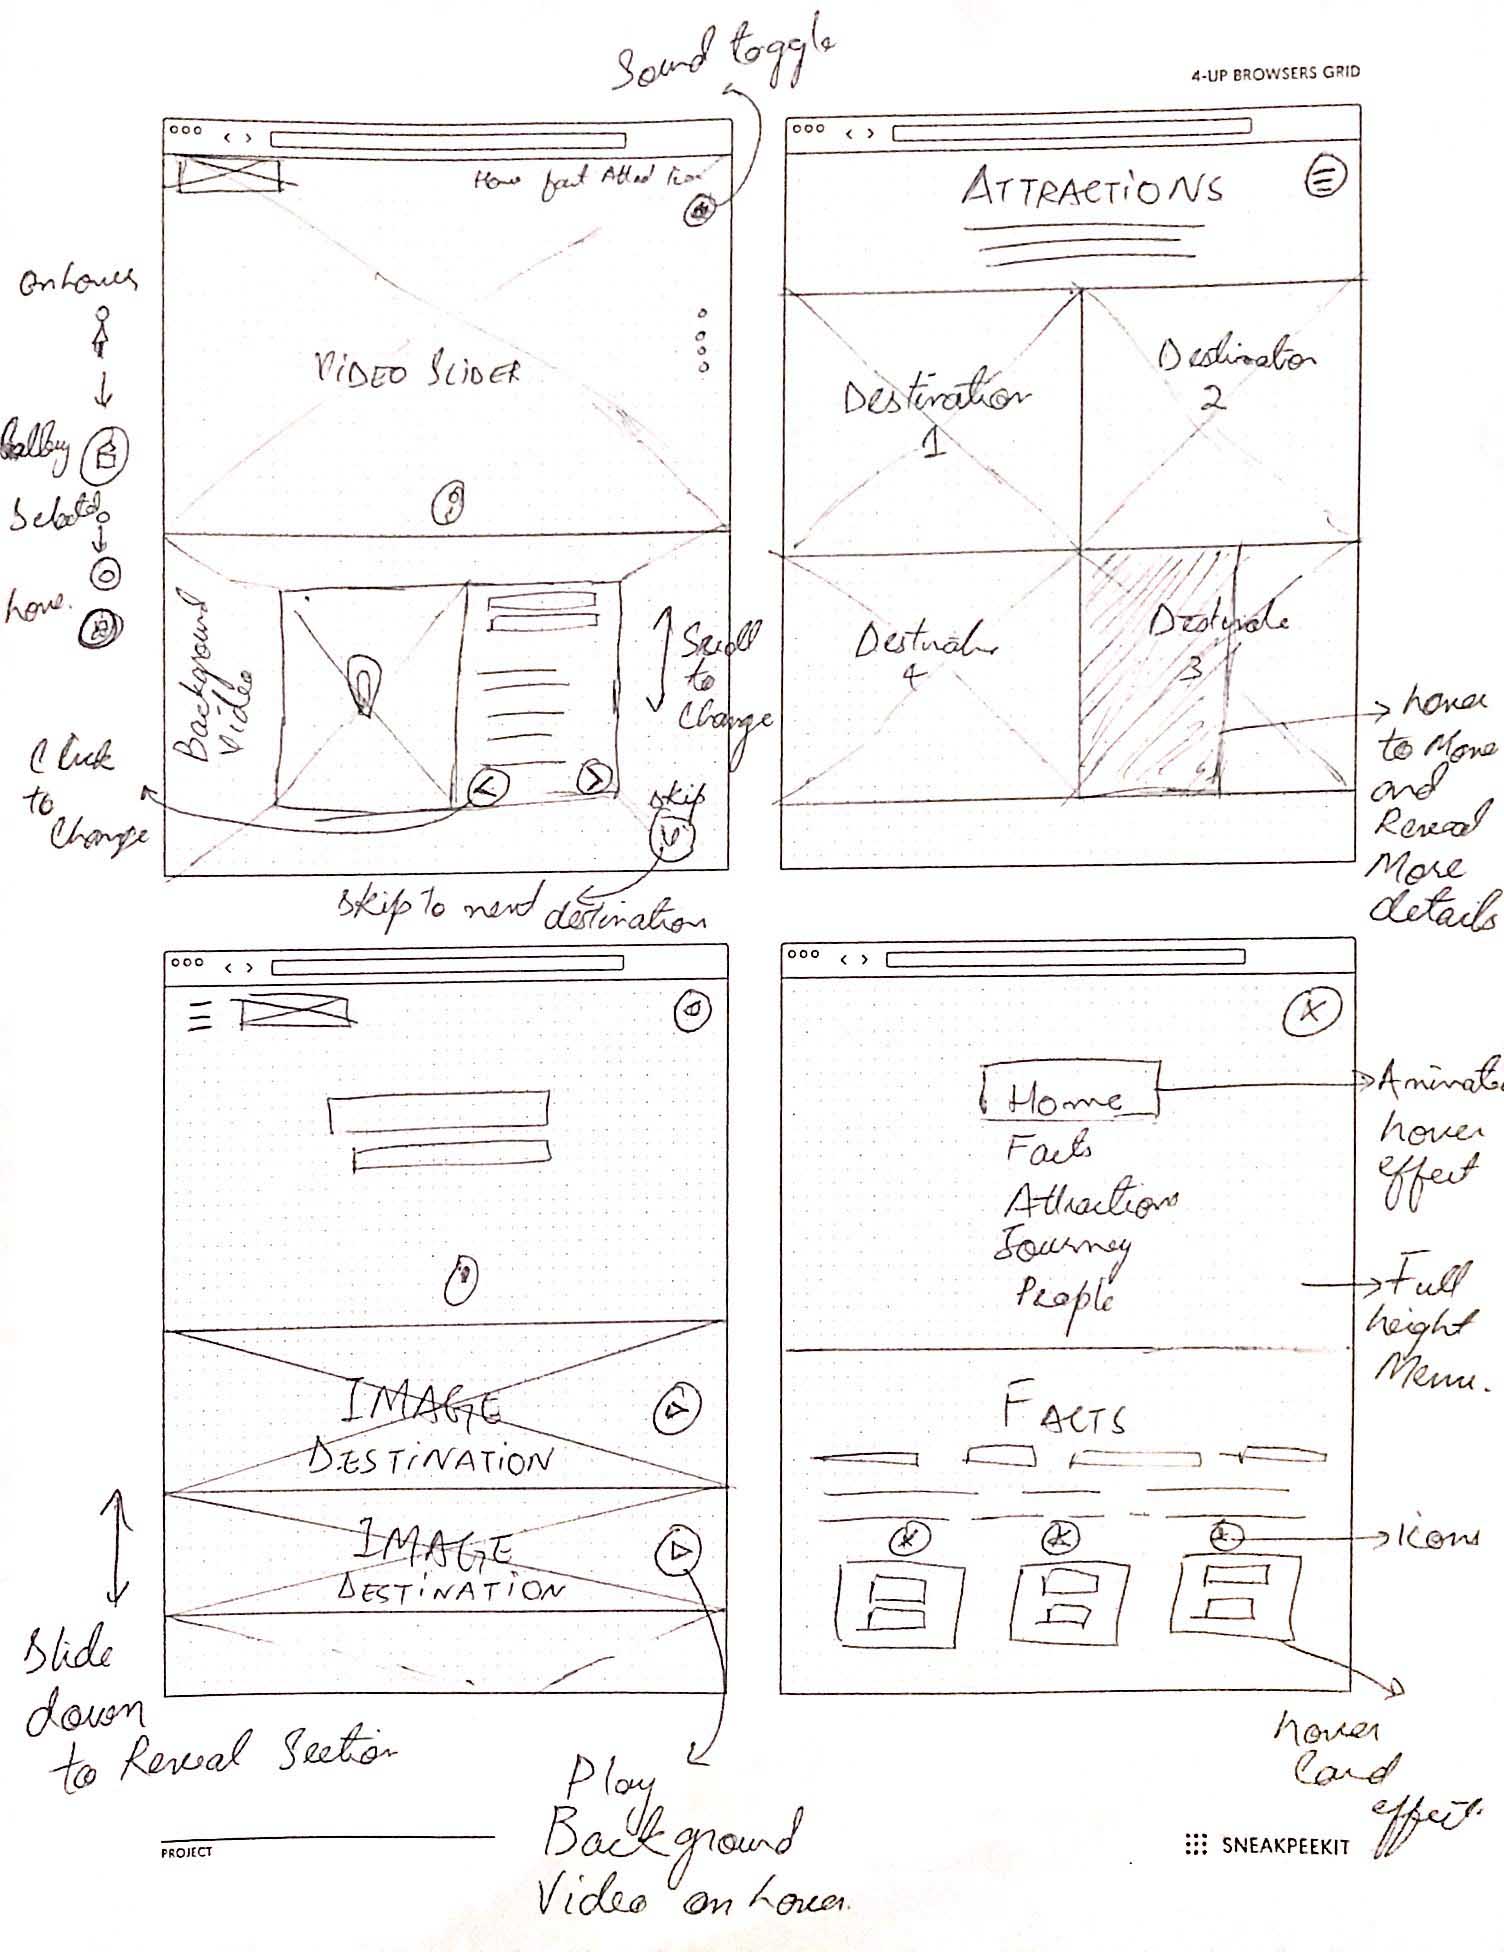 Sound toggle
4-UP BROWSERS GRID
Home
on hover
VIDEO SLIDER
Selected
Background
Video
Scroll
to
Change
Click
to
Change
skip
skip to next destination
ATTRACTIONS
Destination
1
Destination
2
4
3
hover
to More
and
Reveal
More
details
IMAGE
DESTINATION
IMAGE
DESTINATION
Slide
down
to Reveal Section
Play
Background
Video on hover.
Home
Facts
Attractions
Journey
People
Animated
hover
effect
Full
height
Menu.
FACTS
icons
hover
Card
effect.
PROJECT
SNEAKPEEKIT